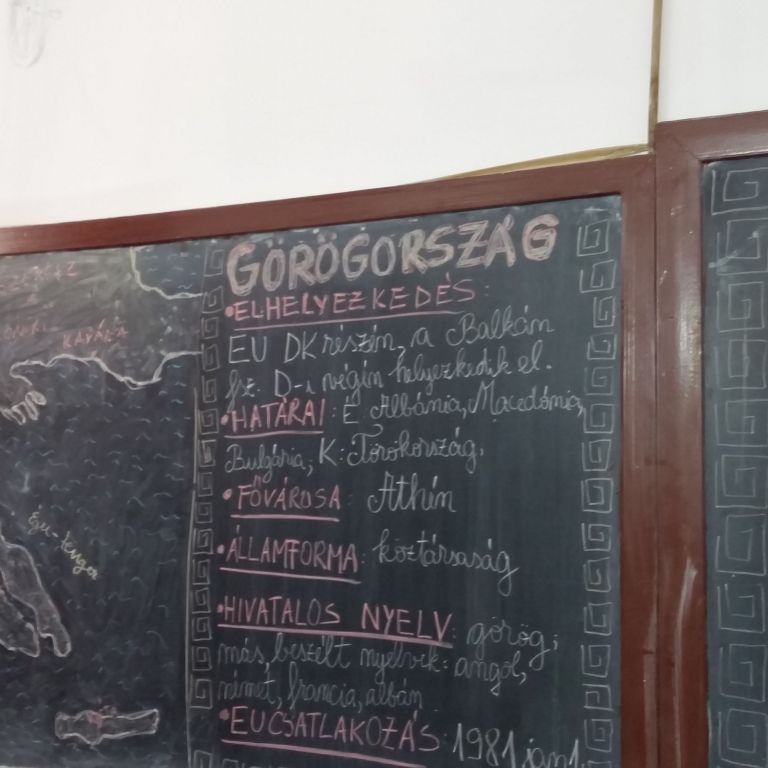 GÖRÖGORSZÁG
•ELHELYEZKEDÉS:
EU DK részén, a Balkán
fsz. D-i végén helyezkedik el.
•HATÁRAI: É: Albánia, Macedónia,
Bulgária, K: Törökország.
•FŐVÁROSA: Athén
•ÁLLAMFORMA: köztársaság
•HIVATALOS NYELV: görög;
más, beszélt nyelvek: angol,
német, francia, albán
•EU CSATLAKOZÁS: 1981 jan 1.
KAVÁLA
Égei-tenger